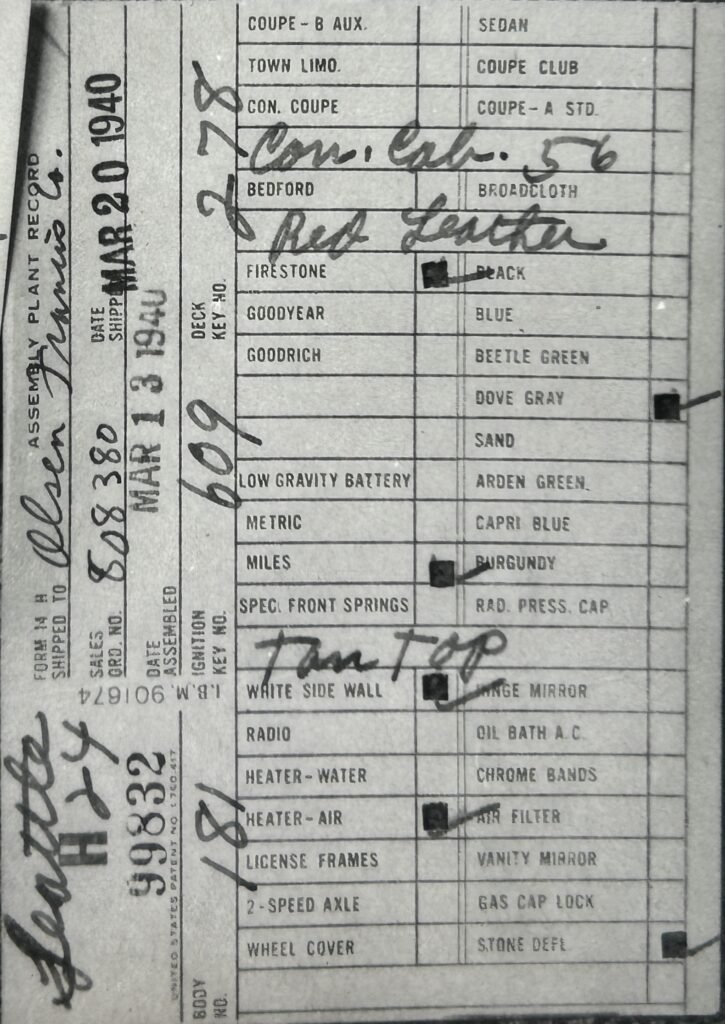 FORM 14 H ASSEMBLY PLANT RECORD
SHIPPED TO Olsen Francis Co.
SALES ORD. NO. 808380 DATE SHIPPED MAR 20 1940
DATE ASSEMBLED MAR 13 1940
IGNITION KEY NO. 609 DECK KEY NO. 278
I.B.M. 901674
Seattle
H 24
99832
UNITED STATES PATENT NO. 1,780,417
BODY NO. 181
COUPE-B AUX. SEDAN
TOWN LIMO. COUPE CLUB
CON. COUPE COUPE-A STD.
Con. Cab. 56
BEDFORD BROADCLOTH
Red Leather
FIRESTONE BLACK
GOODYEAR BLUE
GOODRICH BEETLE GREEN
DOVE GRAY
SAND
LOW GRAVITY BATTERY ARDEN GREEN
METRIC CAPRI BLUE
MILES BURGUNDY
SPEC. FRONT SPRINGS RAD. PRESS. CAP
Tan TOP
WHITE SIDE WALL HINGE MIRROR
RADIO OIL BATH A.C.
HEATER-WATER CHROME BANDS
HEATER-AIR AIR FILTER
LICENSE FRAMES VANITY MIRROR
2-SPEED AXLE GAS CAP LOCK
WHEEL COVER STONE DEFL.